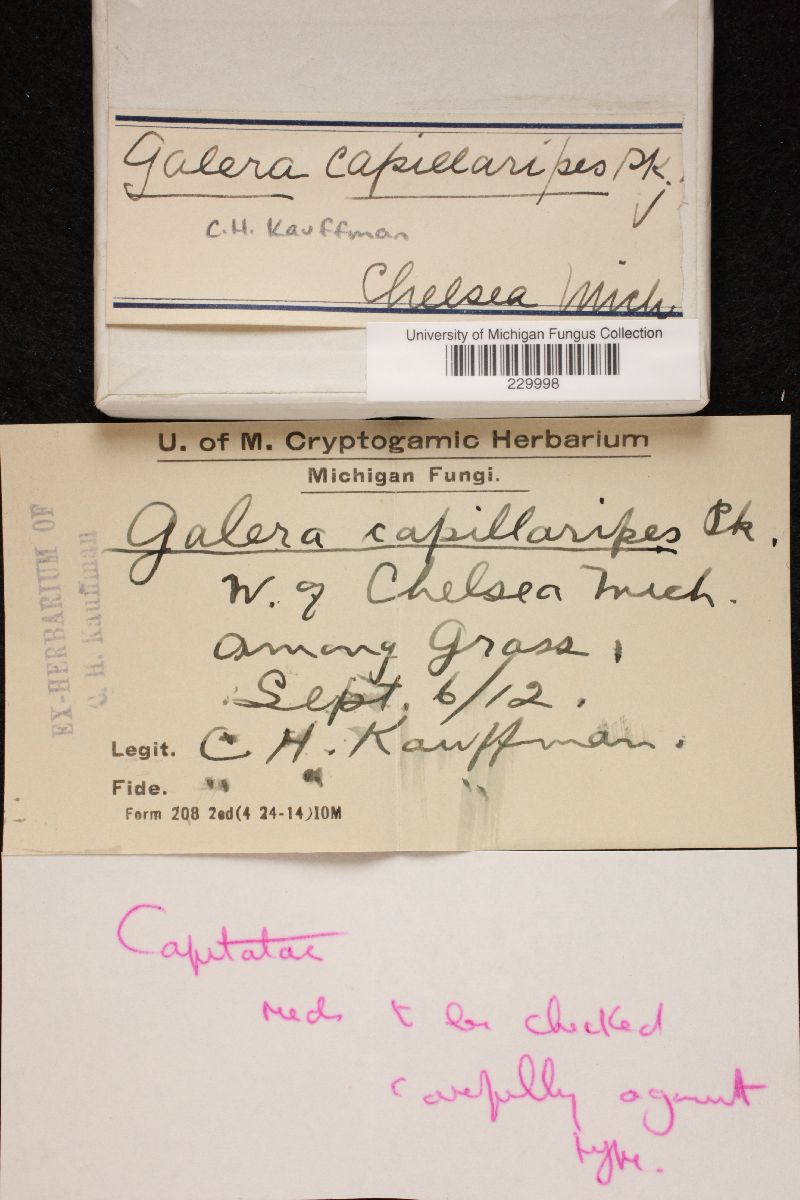 Galera capillaripes Pk.
C.H. Kauffman
Chelsea Mich
University of Michigan Fungus Collection
229998
U. of M. Cryptogamic Herbarium
Michigan Fungi.
Galera capillaripes Pk.
W. of Chelsea Mich.
among Grass.
Sept. 6/12.
Legit. C H. Kauffman.
Fide. " " "
Form 208 2ed(4 24-14)10M
EX-HERBARIUM OF
C. H. Kauffman
Capitatae
needs to be checked
carefully against
type.